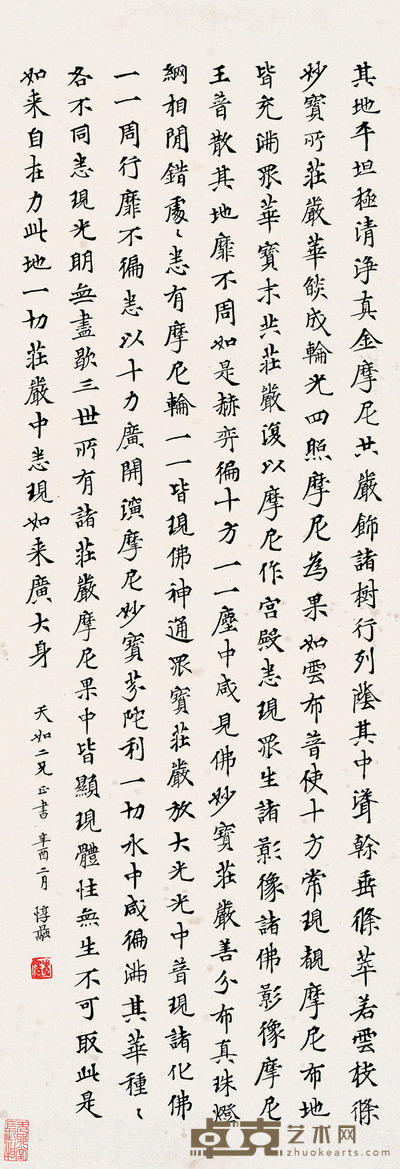 其地平坦極清淨真金摩尼共嚴飾諸樹行列蔭其中聳幹垂條華若雲枝條
妙寶所莊嚴華燄成輪光四照摩尼為果如雲布普使十方常現覩摩尼布地
皆充滿眾華寶末共莊嚴復以摩尼作宮殿悉現眾生諸影像諸佛影像摩尼
王普散其地靡不周如是赫奕徧十方一一塵中咸見佛妙寶莊嚴善分布真珠燈
網相間錯處〻悉有摩尼輪一一皆現佛神通眾寶莊嚴放大光光中普現諸化佛
一一周行靡不徧悉以十力廣開演摩尼妙寶芬陀利一切水中咸徧滿其華種〻
各不同悉現光明無盡歇三世所有諸莊嚴摩尼果中皆顯現體性無生不可取此是
如来自在力此地一切莊嚴中悉現如来廣大身
天如二兄正書 辛酉二月 惇
卓克艺术网
zhuokearts.com